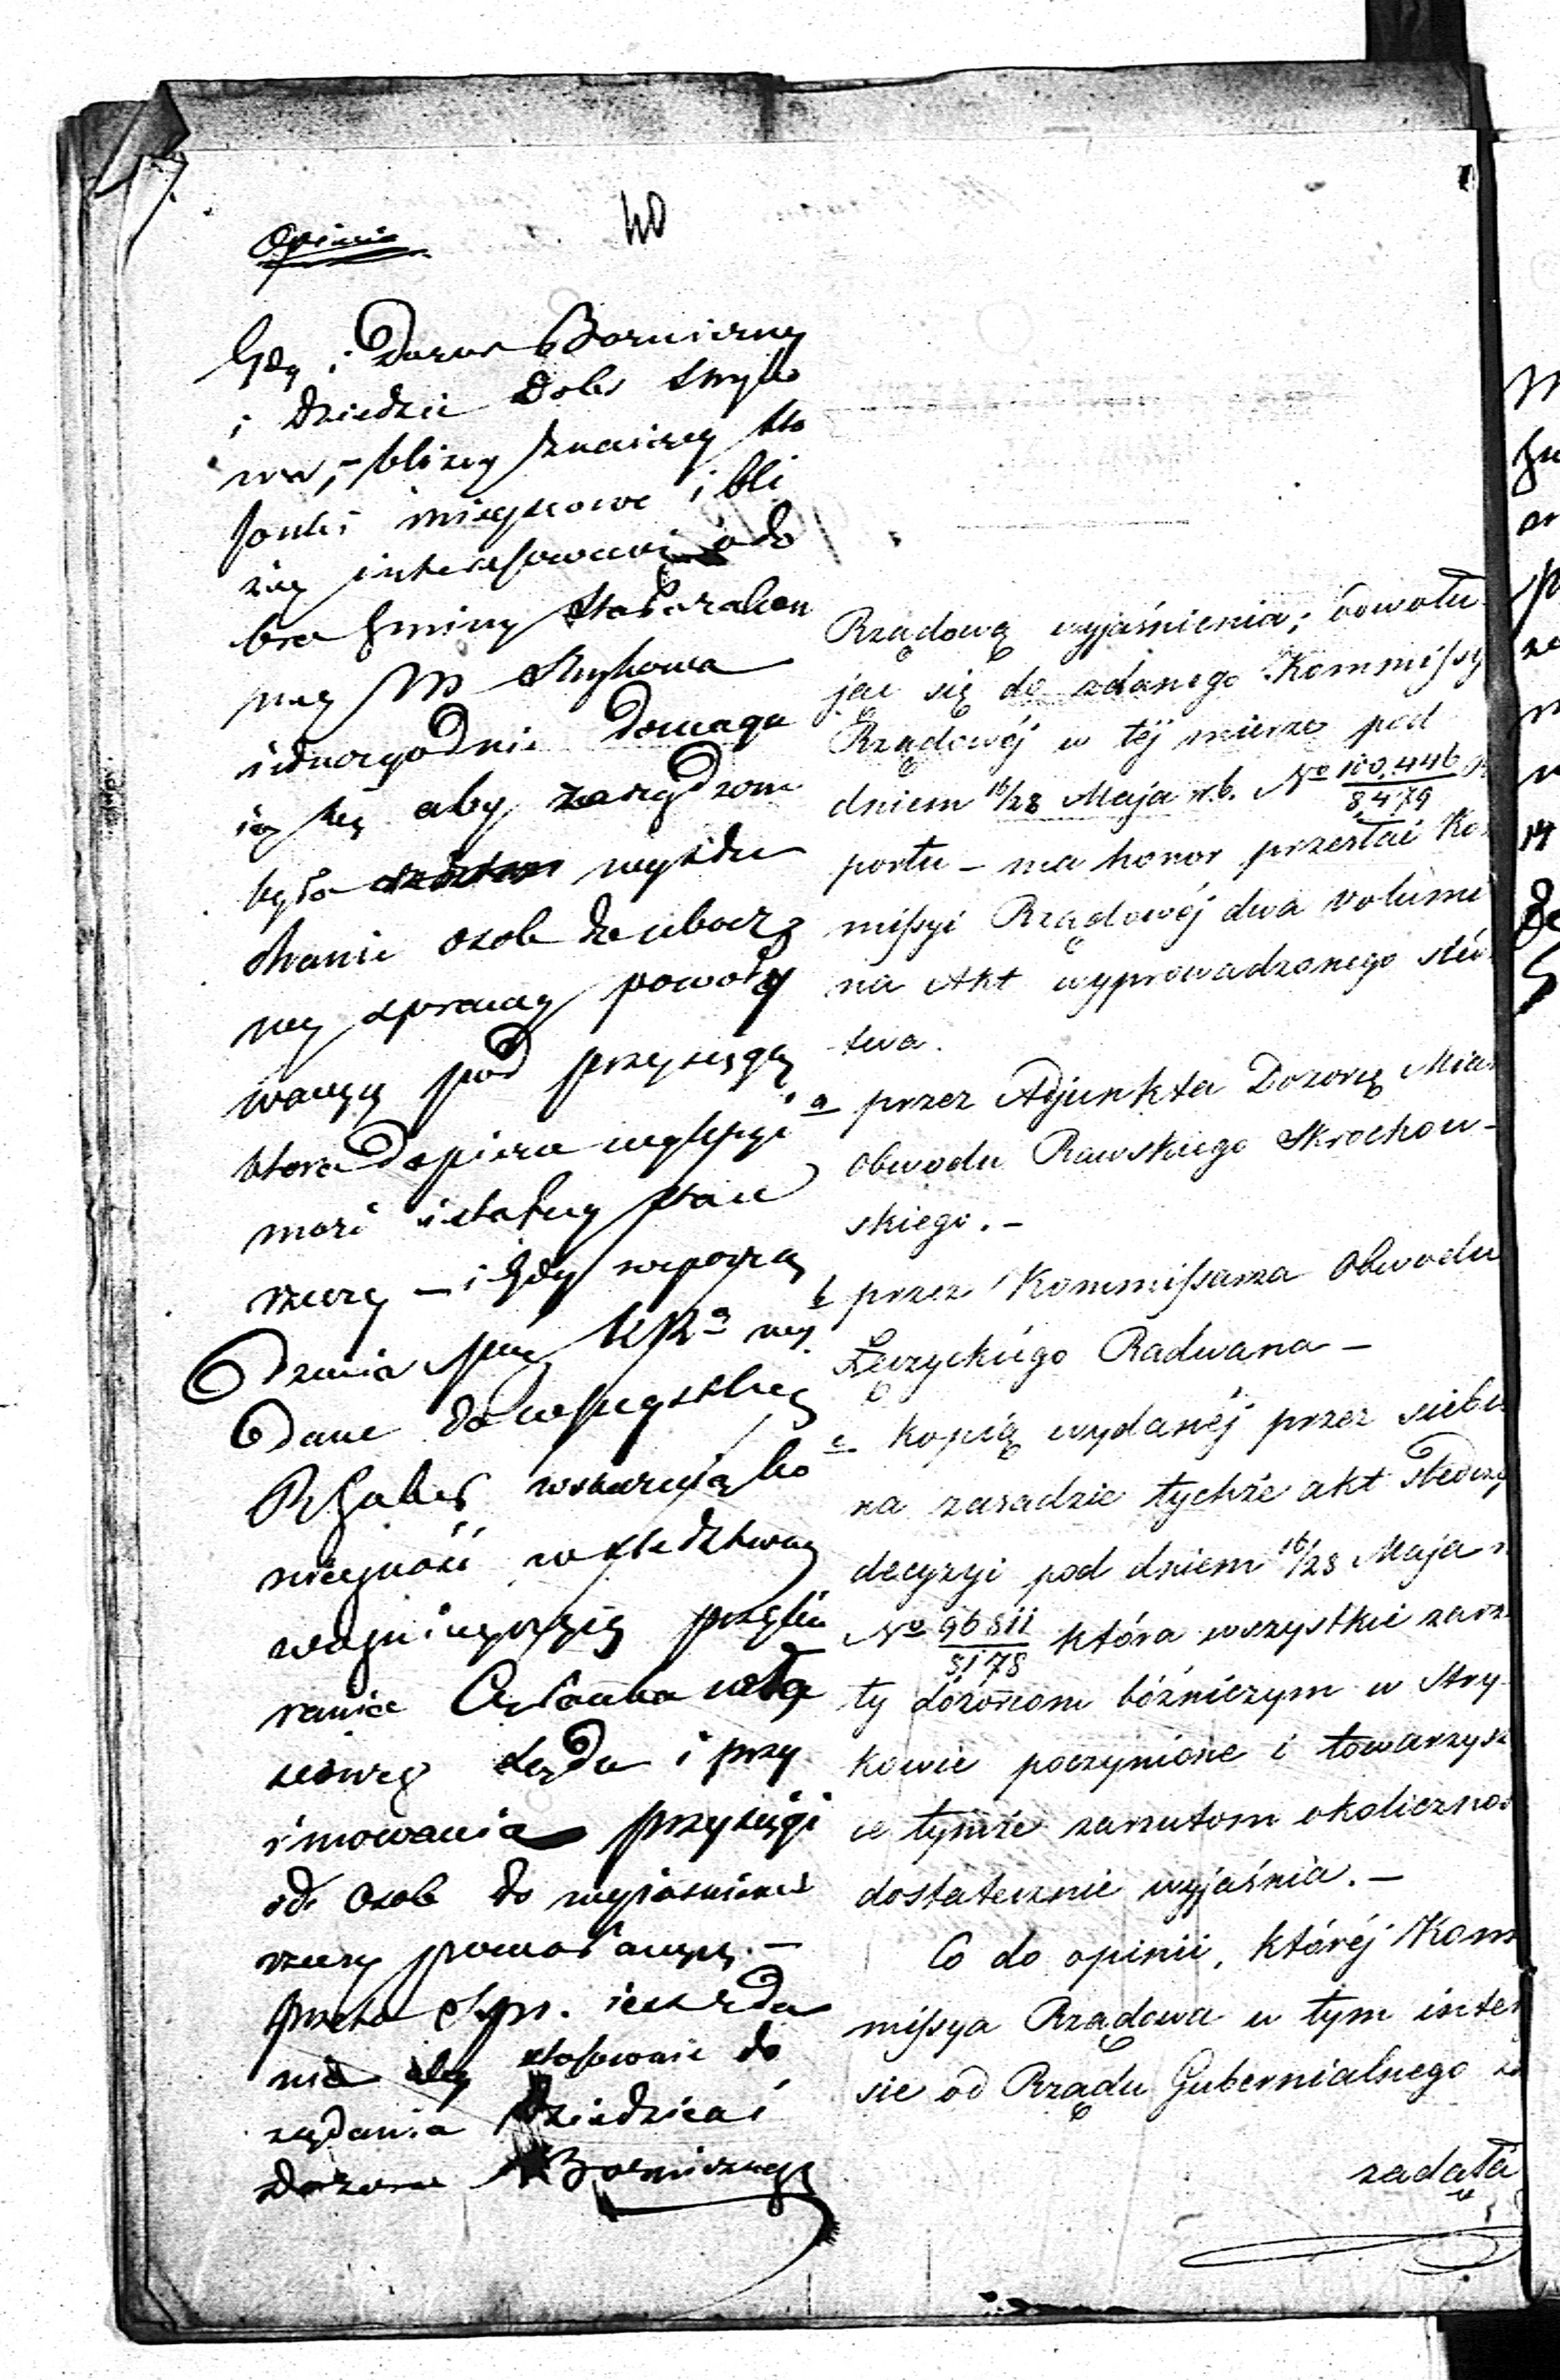 40
Opinia
Gdy i Dozor Bozniczny
i Dziedzic Dobr Stryko
wa, - bliżey znaiący sto
sunki mieyscowe i bli
żey interessowani o do
bro Gminy Starozakon
ney M Strykowa
iednozgodnie domaga
ią się aby zarządzone
było wysłu
chanie osob do
ney sprawy powoły
wanych pod przysięgą
ktora dopiero
może istotny stan
rzeczy - i Gdy rozporzą
dzenia przez KR wy
dane do wszystkich
R Guber wskazuią ko
nieczność w śledztwach
przybie
ranie Członka
Sądu i przy
imowania przysięgi
od osob do wyiasnienia
rzeczy powołanych. -
przeto iest zda
nia aby stosownie do
żądania Dziedzica i
Dozoru Bozniczego
Rządową wyjaśnienia; odwołu
jąc się do zdanego Kommissyi
Rządowéj w téj mierze pod
dniem 16/28 Maja r.b. No 100,446/8,479
portu - ma honor przesłać Kom
missyi Rządowéj dwa volumi
na Akt wyprowadzonego śledz
twa.
a przez Adjunkta Dozorcę Miast
Obwodu Rawskiego Skrochow-
skiego. -
b przez Kommissarza Obwodu
Łęczyckiego Radwana -
c kopią wydanéj przez siebie
na zasadzie tychże akt śledczych
decyzyi pod dniem 16/28 Maja r
No 96811/8178 która wszystkie zarzu
ty dozorcom bóżniczym w Stry-
kowie poczynione i towarzyszą
ce tymże zarzutom okoliczności
dostatecznie wyjaśnia. -
Co do opinii, któréj Kom
missya Rządowa w tym intere
sie od Rządu Gubernialnego za
żądała